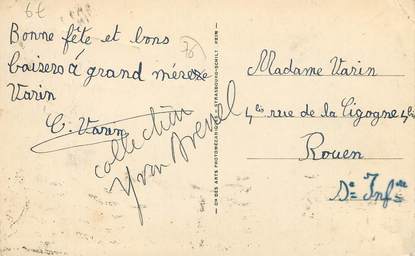 6€
76
Bonne fête et bons
baisers à grand mère
Varin
C. Varin
collection
Yvon Drenel
Cie DES ARTS PHOTOMÉCANIQUES STRASBOURG-SCHILT. PARIS
Madame Varin
4bis rue de la Cigogne 4bis
Rouen
Sne Infre